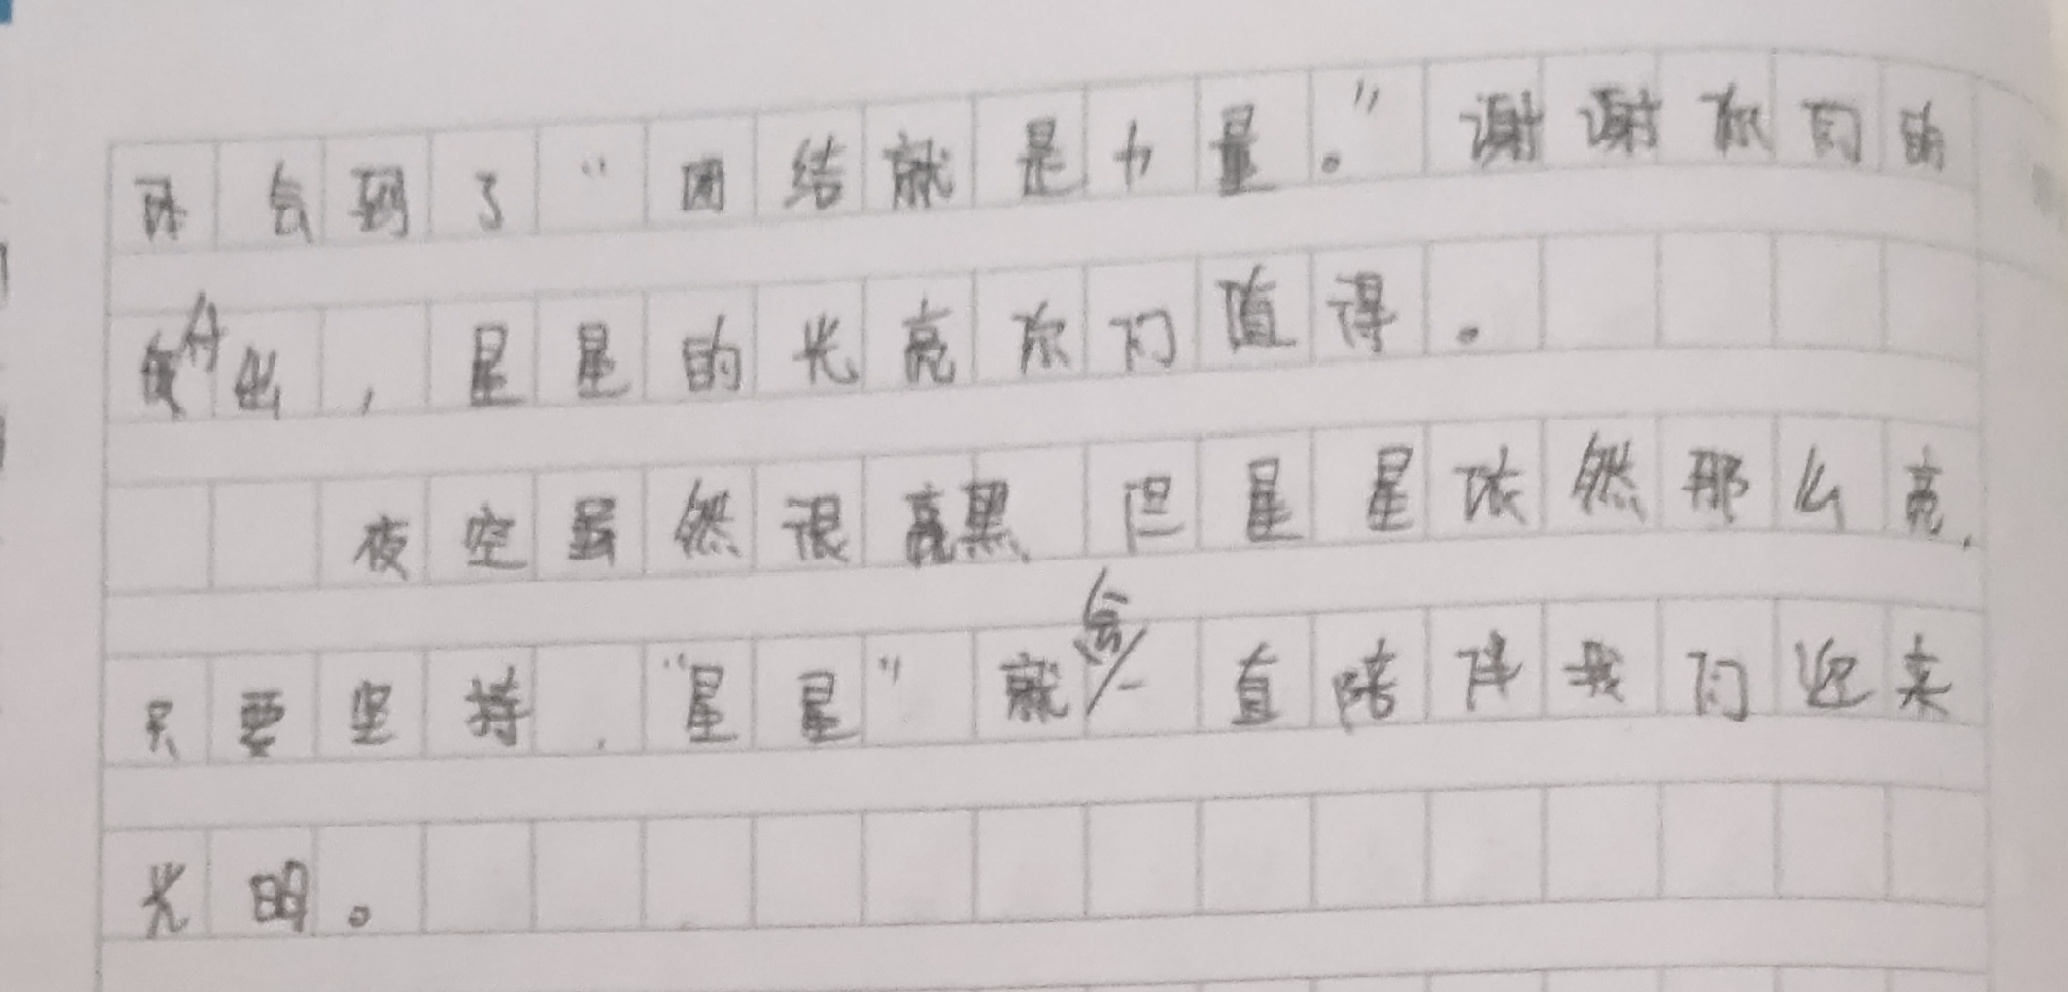 体会到了“团结就是力量。”谢谢你们的
付出，星星的光亮你们值得。
夜空虽然很黑，但星星依然那么亮，
只要坚持，“星星”就会一直陪伴我们迎来
光明。